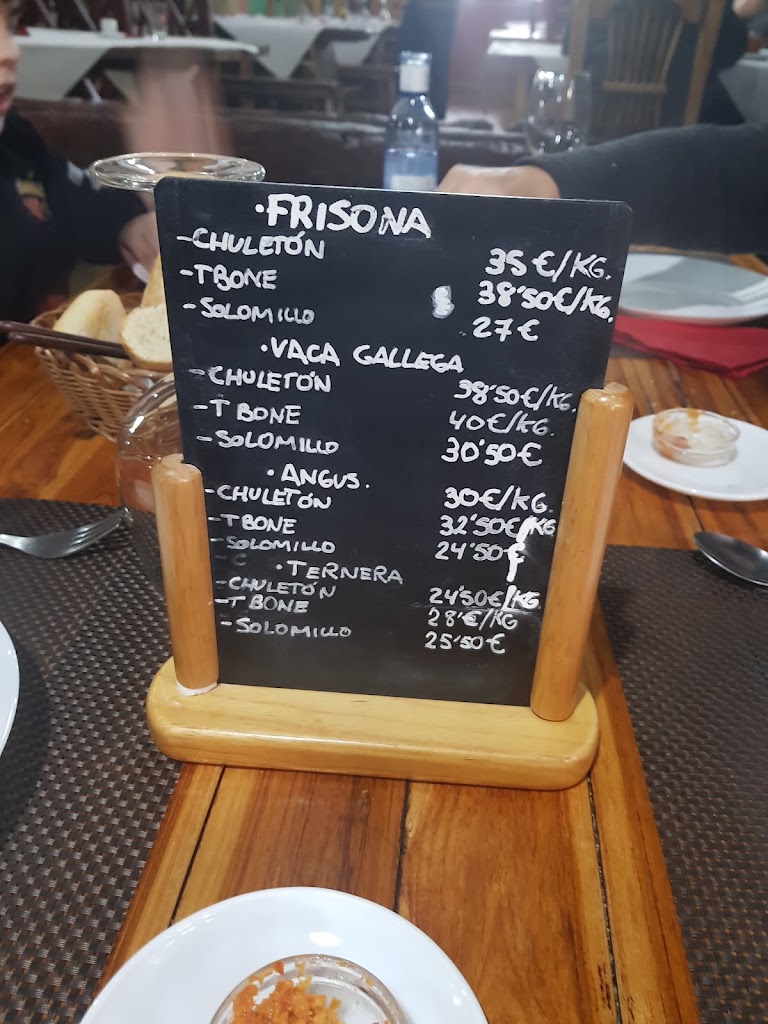 ·FRISONA
-CHULETÓN 35€/KG.
-T BONE 38'50€/KG.
-SOLOMILLO 27€
·VACA GALLEGA
-CHULETÓN 38'50€/KG.
-T BONE 40€/KG.
-SOLOMILLO 30'50€
·ANGUS.
-CHULETÓN 30€/KG.
-T BONE 32'50€/KG
-SOLOMILLO 24'50€
·TERNERA
-CHULETÓN 24'50€/KG.
-T BONE 28'€/KG
-SOLOMILLO 25'50€